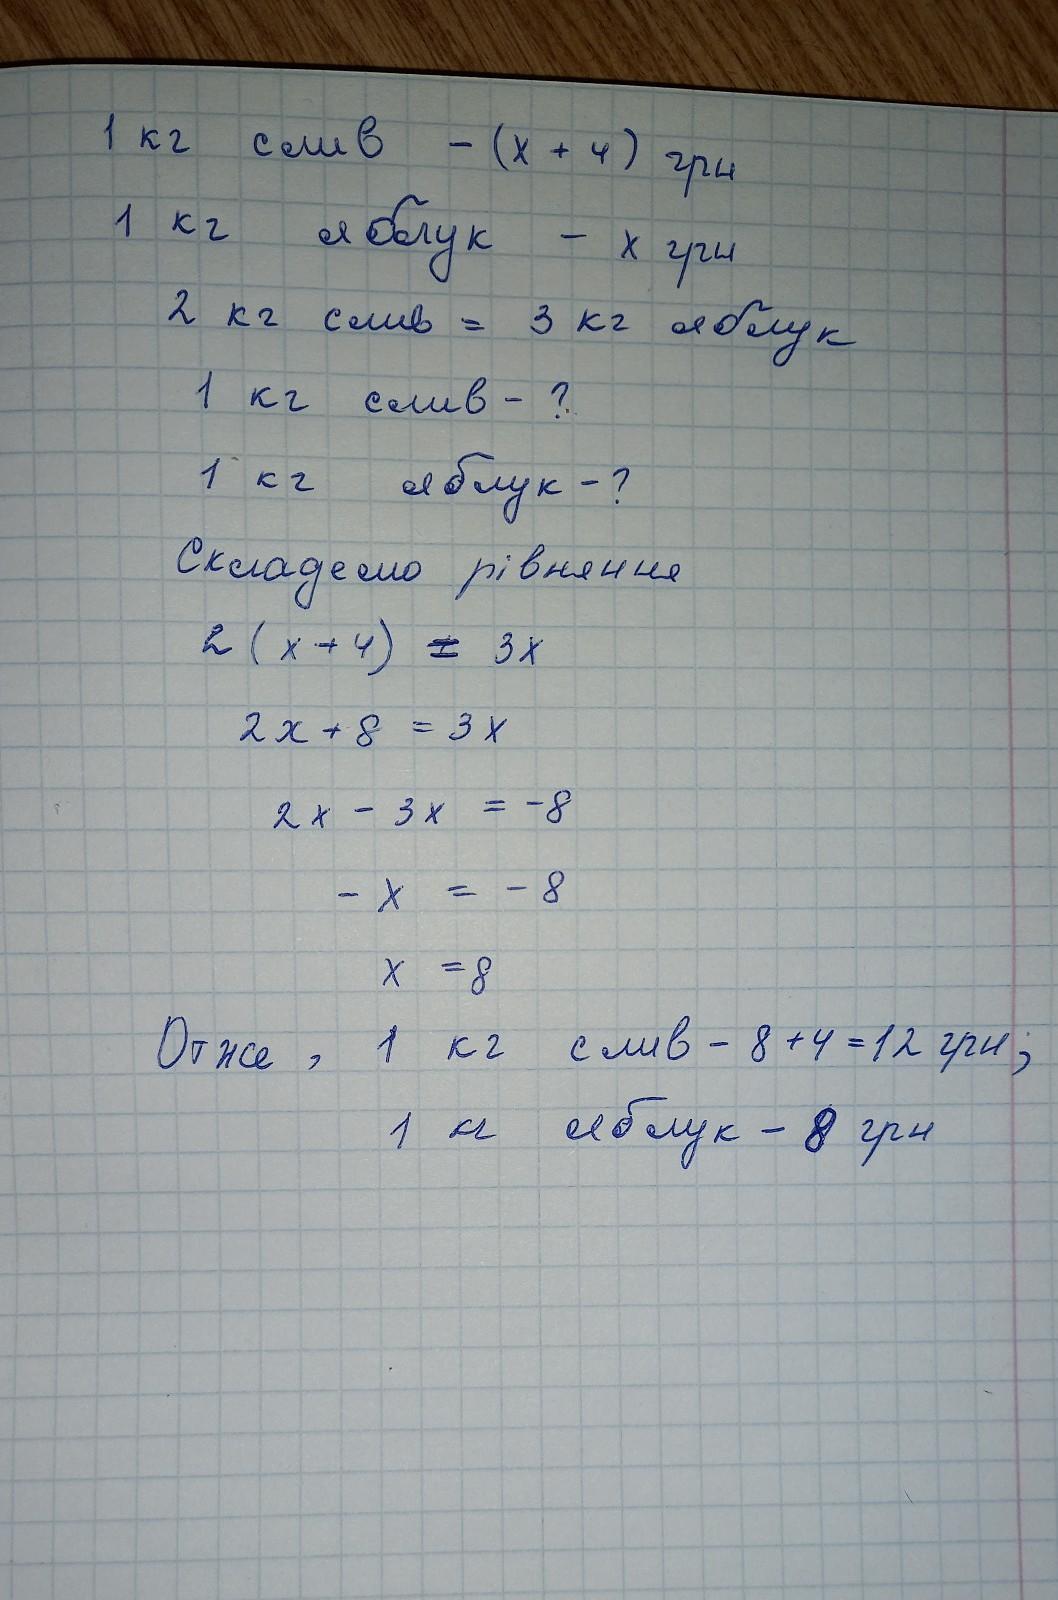 1 кг слив - (x + 4) грн
1 кг яблук - x грн
2 кг слив = 3 кг яблук
1 кг слив - ?
1 кг яблук - ?
Складемо рівняння
2(x+4) = 3x
2x+8 = 3x
2x - 3x = -8
- x = - 8
x = 8
Отже, 1 кг слив - 8+4=12 грн;
1 кг яблук - 8 грн